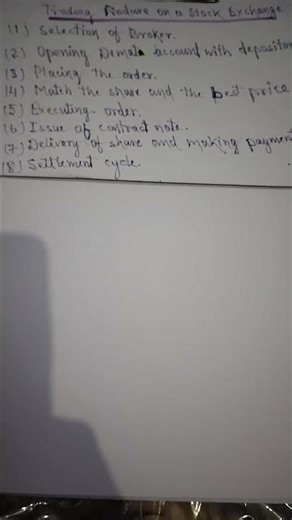 Trading Podure on a Stock Exchange
(1) Selection of Broker.
(2) Opening Demat account with depositor
(3) Placing the order.
(4) Match the share and the best price
(5) Executing order.
(6) Issue of contract note.
(7) Delivery of share and making payment
(8) Settlement cycle.